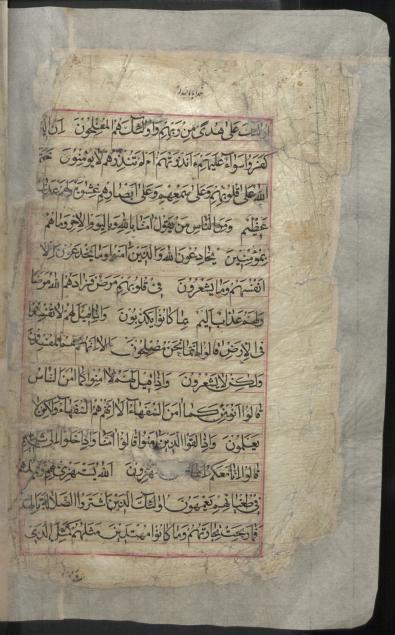 اولئك على هدى من ربهم واولئك هم المفلحون ان الذين
كفروا سواء عليهم ءانذرتهم ام لم تنذرهم لا يؤمنون ختم
الله على قلوبهم وعلى سمعهم وعلى ابصارهم غشوة ولهم عذاب
عظيم ومن الناس من يقول امنا بالله وباليوم الاخر وما هم
بمؤمنين يخادعون الله والذين امنوا وما يخدعون الا
انفسهم وما يشعرون في قلوبهم مرض فزادهم الله مرضا
ولهم عذاب اليم بما كانوا يكذبون واذا قيل لهم لا تفسدوا
في الارض قالوا انما نحن مصلحون الا انهم هم المفسدون
ولكن لا يشعرون واذا قيل لهم امنوا كما امن الناس
قالوا انؤمن كما امن السفهاء الا انهم هم السفهاء ولكن لا
يعلمون واذا لقوا الذين امنوا قالوا امنا واذا خلوا الى
قالوا انا معكم الله يستهزئ بهم ويمدهم
في طغيانهم يعمهون اولئك الذين اشتروا الضلالة بالهدى
فما ربحت تجارتهم وما كانوا مهتدين مثلهم كمثل الذي